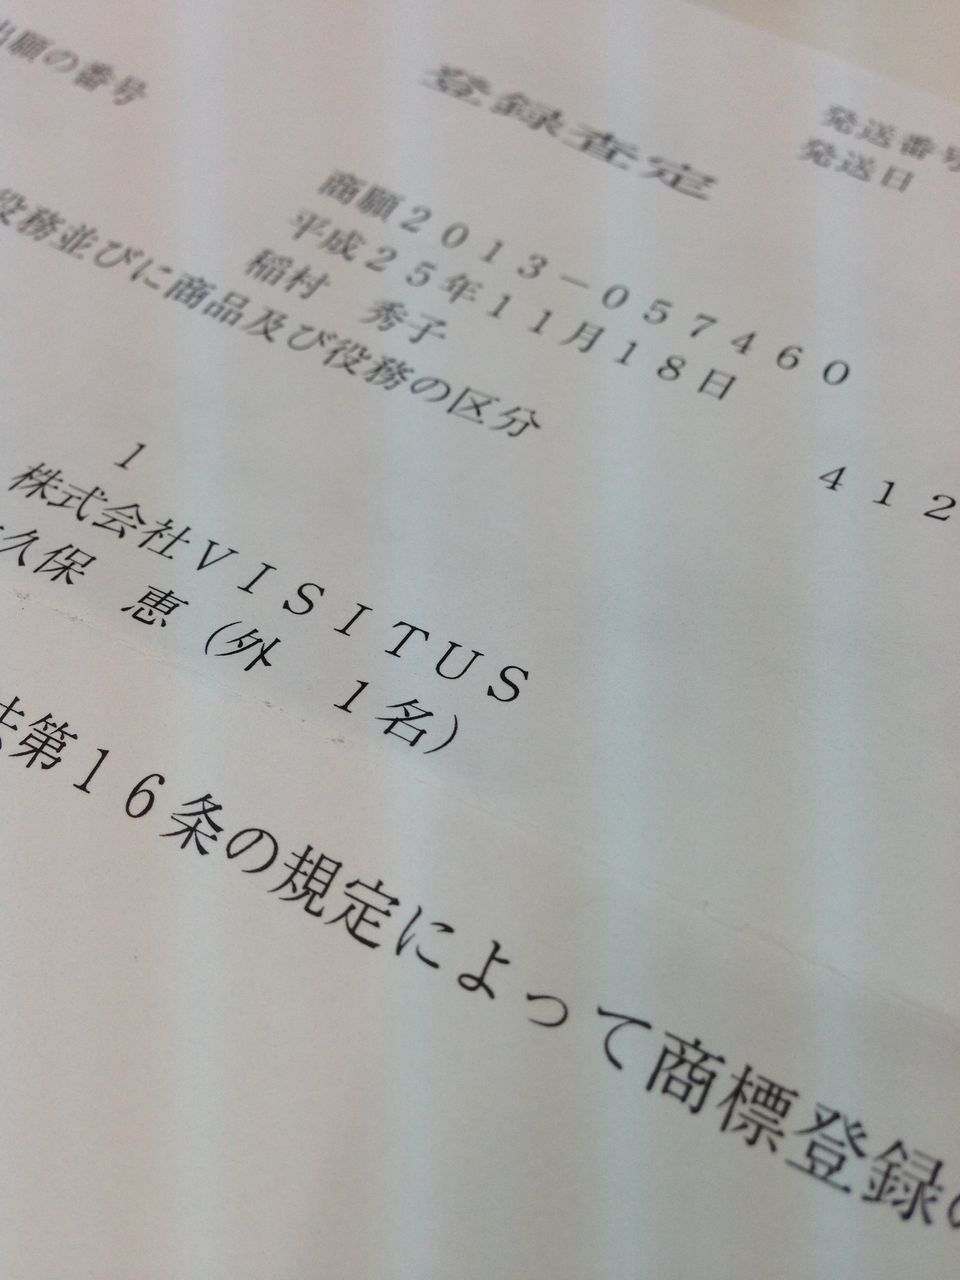 登録査定
発送番号
発送日
出願の番号
商願2013-057460
平成25年11月18日
稲村 秀子
412
役務並びに商品及び役務の区分
1
株式会社VISITUS
久保 恵(外 1名)
法第16条の規定によって商標登録の